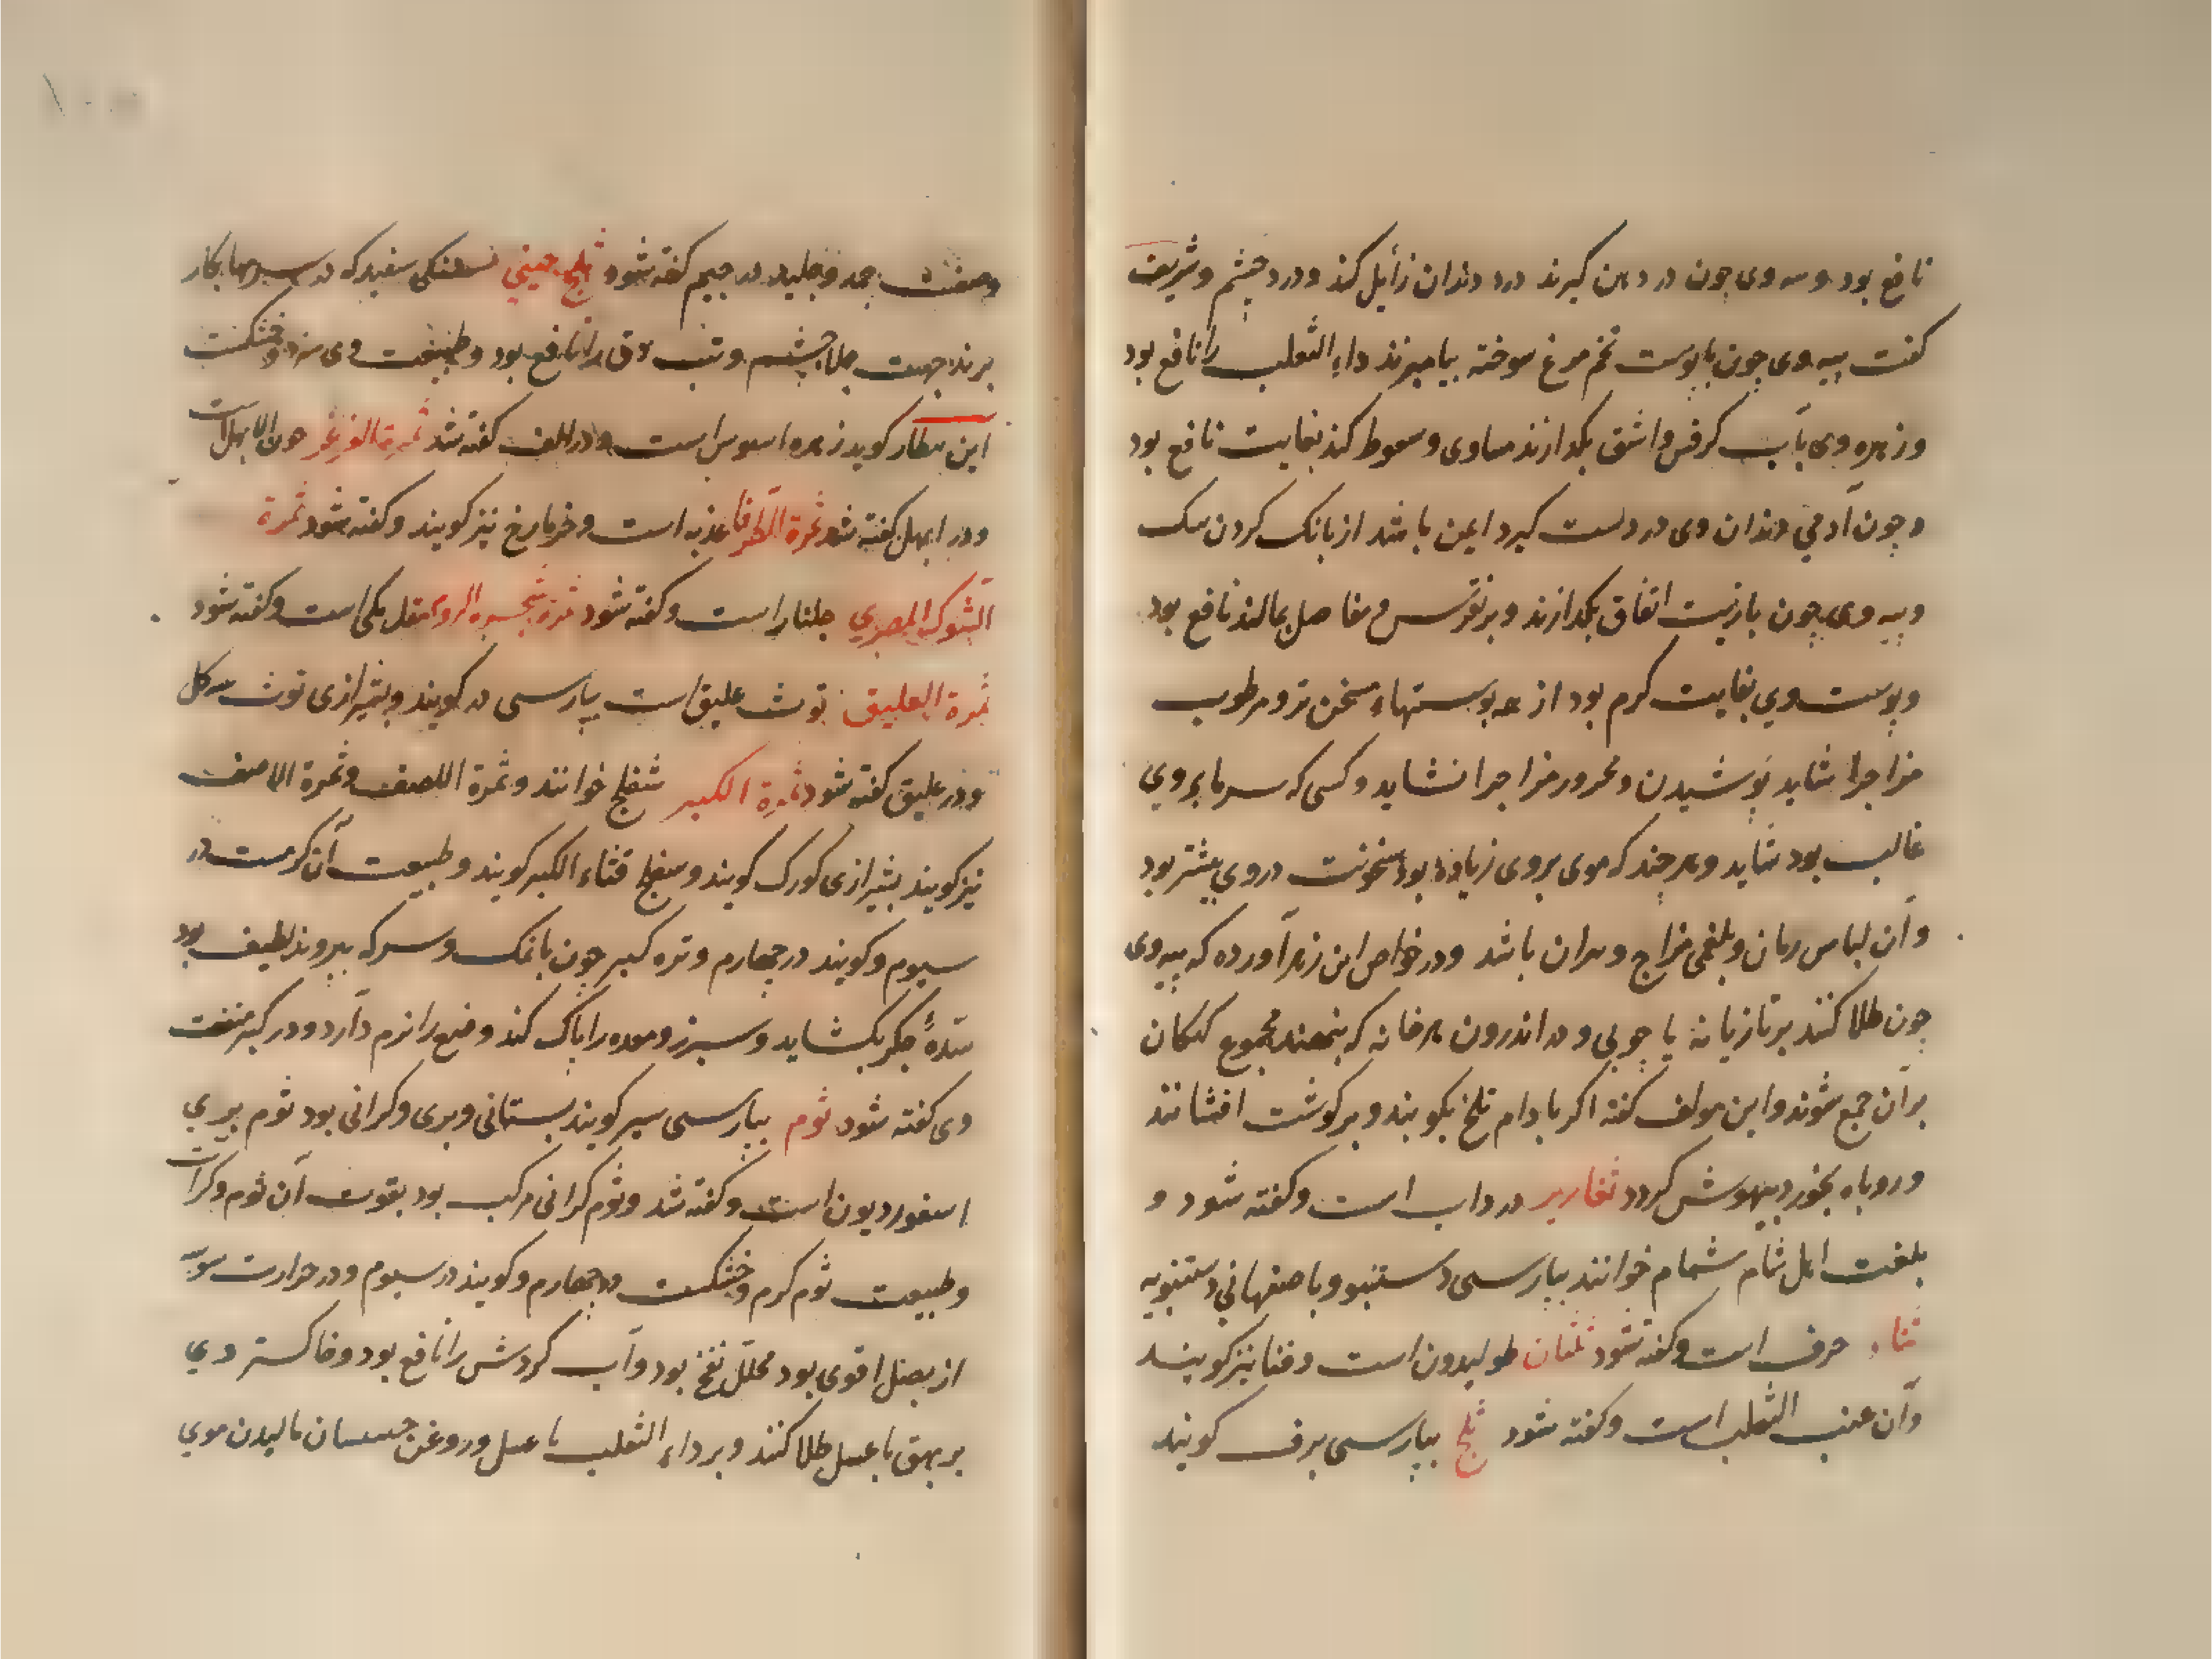 نافع بود و سه وی چون در دهن کیرند درد دندان زایل کند و درد چشم و شریف
کفت پیه وی چون با پوست تخم مرغ سوخته بیامیزند داء الثعلب را نافع بود
و زهره وی بآب کرفس و اشق بکدازند مساوی و سعوط کند بغایت نافع بود
و چون آدمي دندان وی در دست کیرد ایمن باشد از بانک کردن سک
و پیه وی چون بازیت انفاق بکدازند و بر نقرس و مفاصل بمالند نافع بود
و پوست وي بغایت کرم بود از همه پوستهاء سخن تر و مرطوب
مزاجرا شاید پوشیدن و محرور مزاجرا نشاید و کسی که سرما بروي
غالب بود شاید و هرچند که موی بروی زیاده بود سخونت دروي بیشتر بود
و آن لباس زنان و بلغمی مزاج و پیران باشد و در خواص ابن زهر آورده که پیه وی
چون طلا کنند بر تازیانه یا چوبی و در اندرون هر خانه که بنهند مجموع ککان
بر آن جمع شوند و ابن مولف کفته اکر بادام تلخ بکوبند و بر کوشت افشانند
و روباه بخورد بیهوش کردد ثغاریر در داب است و کفته شود و
بلغت اهل شام شمام خوانند بپارسی دستنبو و باصفهاني دستنبویه
ثفاء حرف است و کفته شود ثلثان طولیدون است و فنا نیز کویند
و آن عنب الثعلب است و کفته شود ثلج بپارسی برف کویند
و صفت جمد و جلید در جیم کفته شود ثلج چیني سنکی سفید که در سرمها بکار
برند جهت جلا چشم و تب دق را نافع بود و طبیعت وی سرد و خشکست
ابن بیطار کوید زهره اسیوس است و در الف کفته شد
و در ابهل کفته شد ثمرة الطرفا عذبه است و خرمازج نیز کویند و کفته شود ثمرة
الشوک المصري جلنار است و کفته شود ثمرة شجره الروم مقل مکی است و کفته شود
ثمرة العلیق توث علیق است بپارسی در کویند و بشیرازی توث سه کل
و در علیق کفته شود ثمرة الکبر شفلج خوانند و ثمرة اللصف و ثمرة الاصف
نیز کویند بشیرازی کورک کویند و سفلج قثاء الکبر کویند و طبیعت آن کرمست در
سیوم و کویند در چهارم و تره کبر چون با نمک و سرکه بپروند لطیف بود
سدهٔ جکر بکشاید و سپرز و معده را پاک کند و طبع را نرم دارد و در کبر منفعت
وی کفته شود ثوم بپارسی سیر کویند بستانی و بری و کراثی بود ثوم بري
اسقوردیون است و کفته شد و ثوم کراثی مرکب بود بقوت آن ثوم و کراث
و طبیعت ثوم کرم و خشکست در چهارم و کویند در سیوم و در حرارت سوم
از بصل اقوی بود محلل نفخ بود و آب کردش را نافع بود و خاکستر وي
بر بهق با عسل طلا کنند و بر داء الثعلب با عسل و روغن چسان مالیدن موي